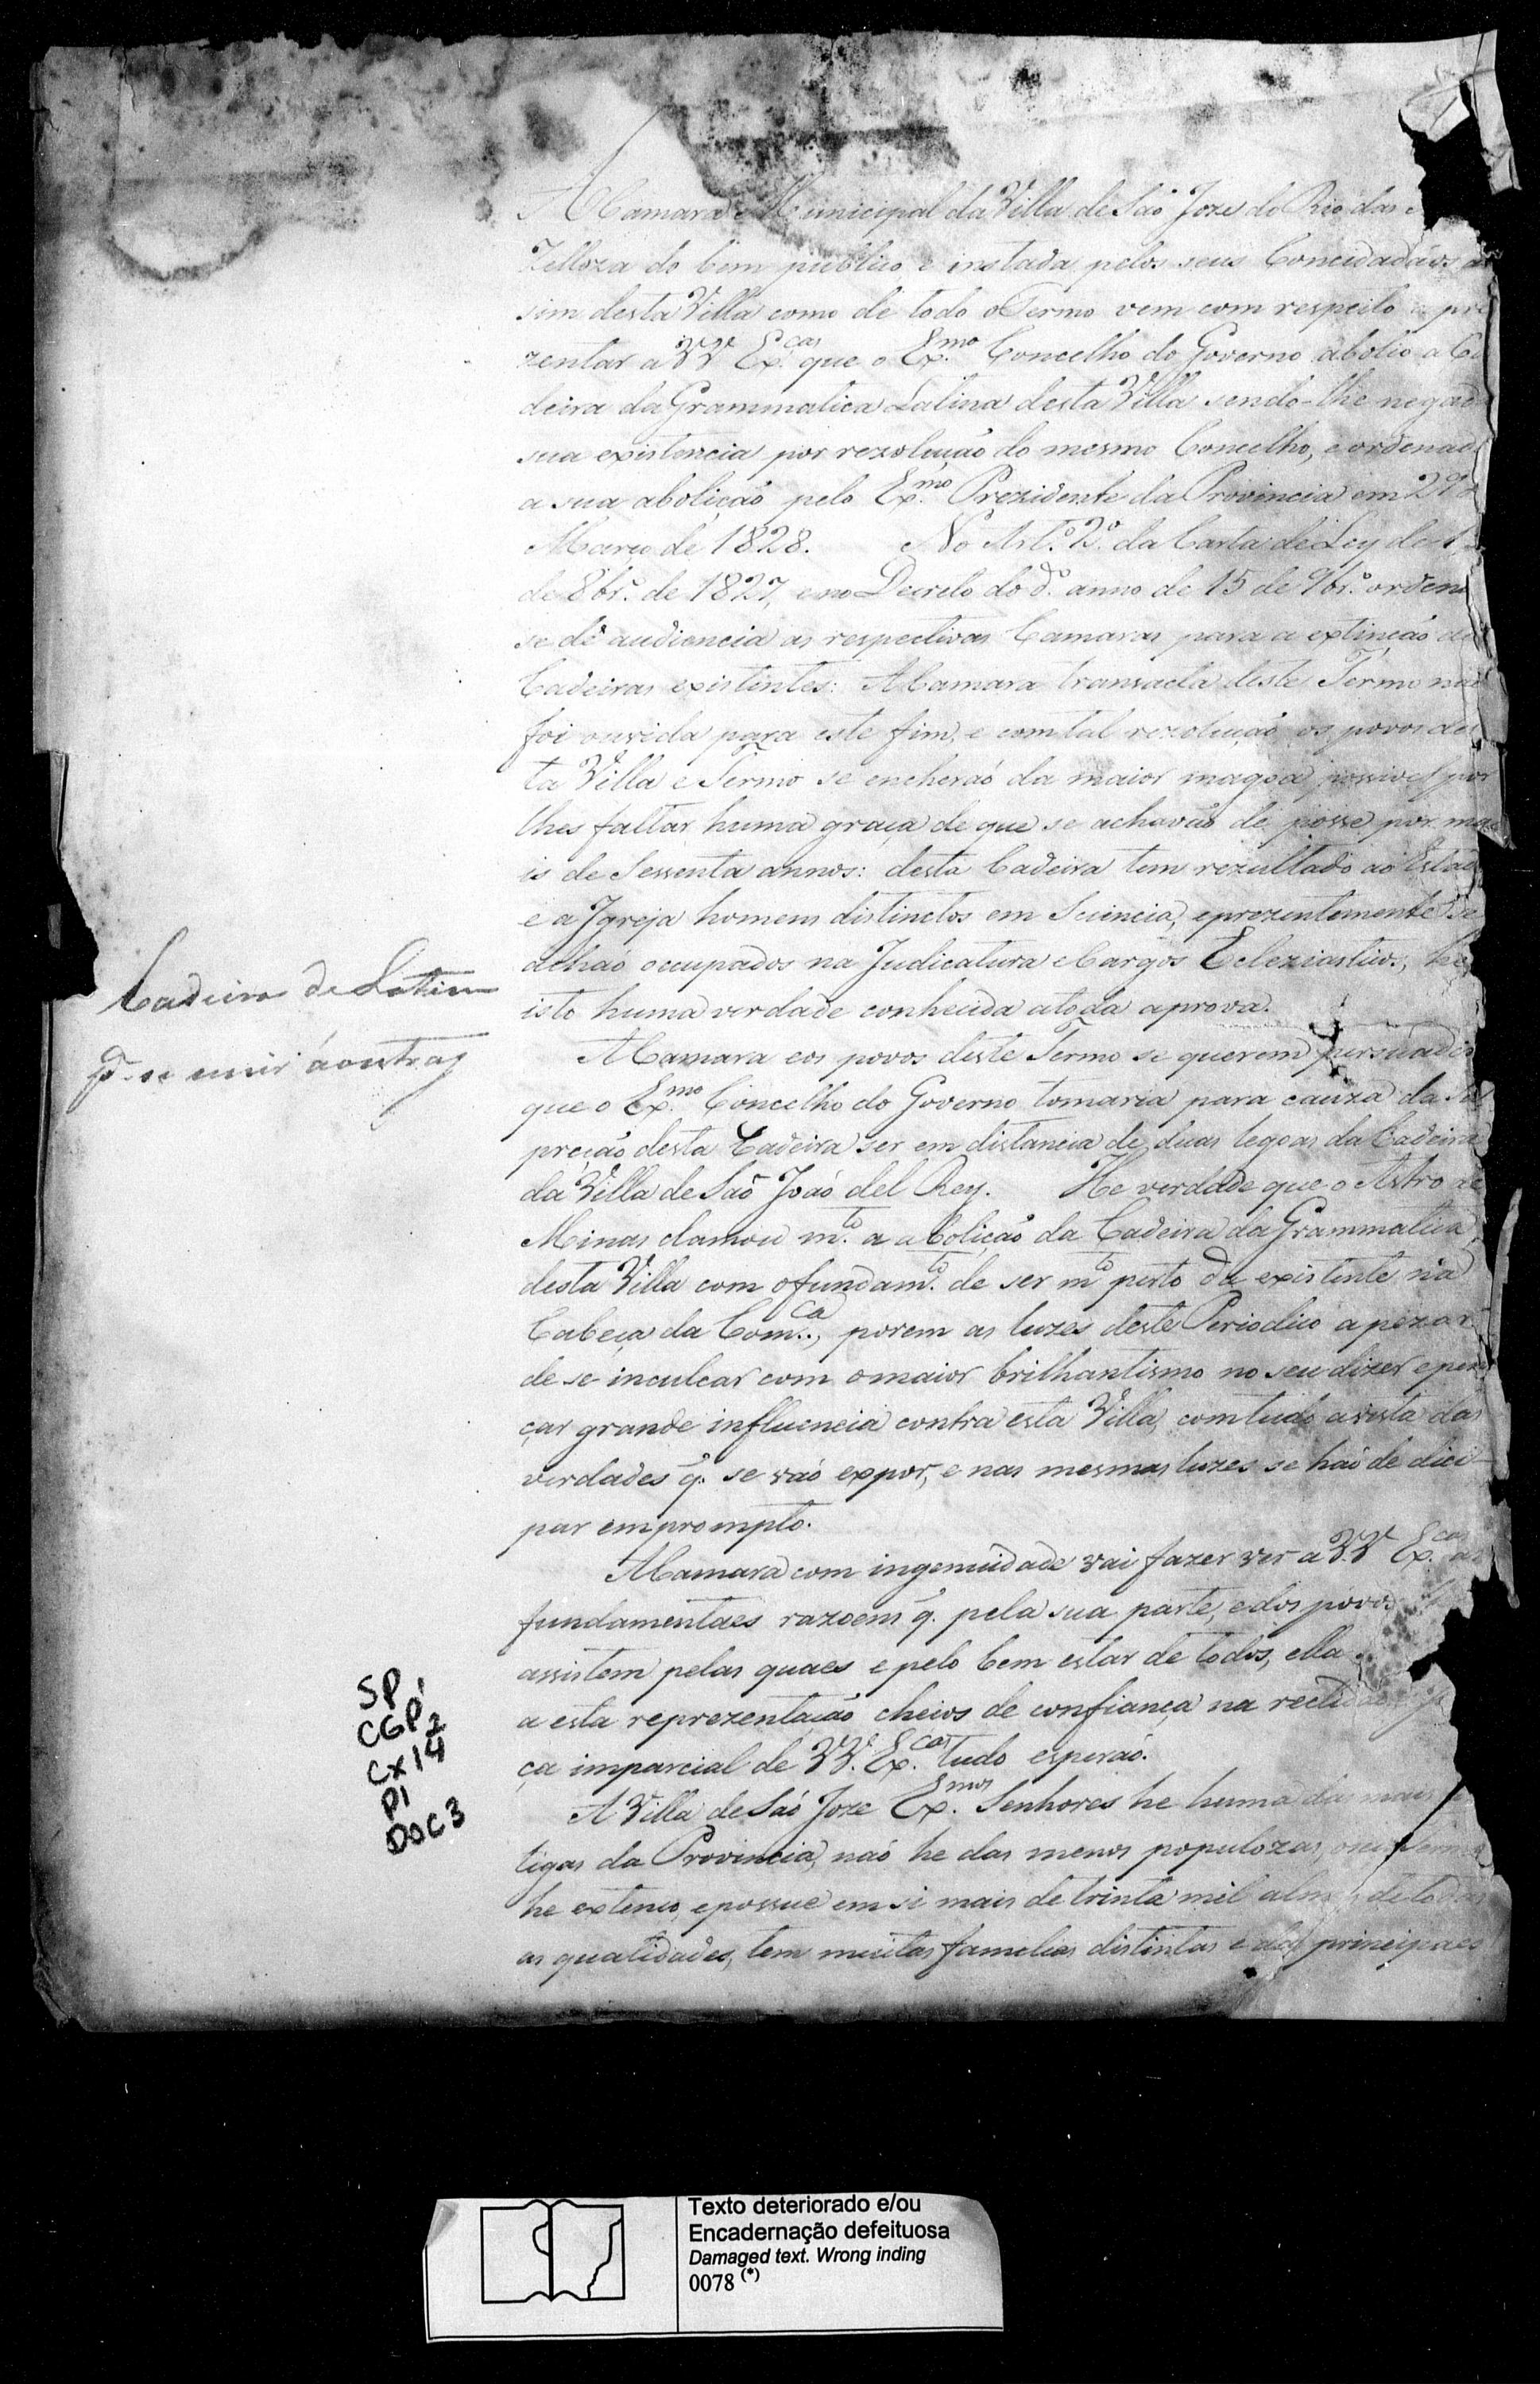 A Camara Municipal da Villa de São Joze do Rio das
Zelloza do bem publico e instada pelos seus Concidadãos as
sim desta Villa como de todo o Termo vem com respeito repre
zentar a VV Ex.cas que o Ex.mo Concelho do Governo abolio a Ca
deira da Grammatica Latina desta Villa sendo-lhe negad
sua existencia por rezolução do mesmo Concelho, e ordenad
a sua abolição pelo Ex.mo Prezidente da Provincia em 29
Março de 1828. No Art.º 2.º da Carta de Ley de 1
de 8br.º de 1827, e no Decreto do d.º anno de 15 de 9br.º orden
se dê audiencia as respectivas Camaras para a extinção
Cadeiras existentes: A Camara transacta deste Termo não
foi ouvida para este fim, e com tal rezolução os povos des
ta Villa e Termo se encherão da maior magoa possivel por
lhes faltar huma graça de que se achavão de posse por ma
is de Sessenta annos: desta Cadeira tem rezultado ao Estad
e a Igreja homens distinctos em Sciencia, e prezentemente se
achão occupados na Judicatura e Cargos Ecleziasticos, he
isto huma verdade conhecida a toda a prova.
A Camara e os povos deste Termo se querem persuadir
que o Ex.mo Concelho do Governo tomaria para cauza da Su
preção desta Cadeira ser em distancia de duas legoas da Cadeira
da Villa de São João del Rey. He verdade que o Astro de
Minas clamou m.to a abolição da Cadeira da Grammatica
desta Villa com o fundam.to de ser m.to perto da existente na
Cabeça da Com.ca, porem as luzes deste Periodico apezar
de se inculcar com o maior brilhantismo no seu dizer e pen
çar grande influencia contra esta Villa, com tudo a vista das
verdades q. se vão expor, e nas mesmas luzes se hão de dici-
par em prompto.
A Camara com ingenuidade vai fazer ver a VV Ex.cas as
fundamentaes razoens q. pela sua parte, e dos povos
assistem pelas quaes e pelo bem estar de todos, ella
a esta reprezentação cheios de confiança na rectidão
ça imparcial de VV. Ex.cas tudo esperão.
A Villa de São Joze Ex.mos Senhores he huma das mais
tigas da Provincia, não he das menos populozas, o seu Termo
he extenço, e possue em si mais de trinta mil almas de todas
as qualidades, tem muitas familias distintas e das principaes
Cadeira de Latim
p.ª se unir á outras
SP
CGP1
Cx 14
P1
DOC 3
Texto deteriorado e/ou
Encadernação defeituosa
Damaged text. Wrong inding
0078 (*)